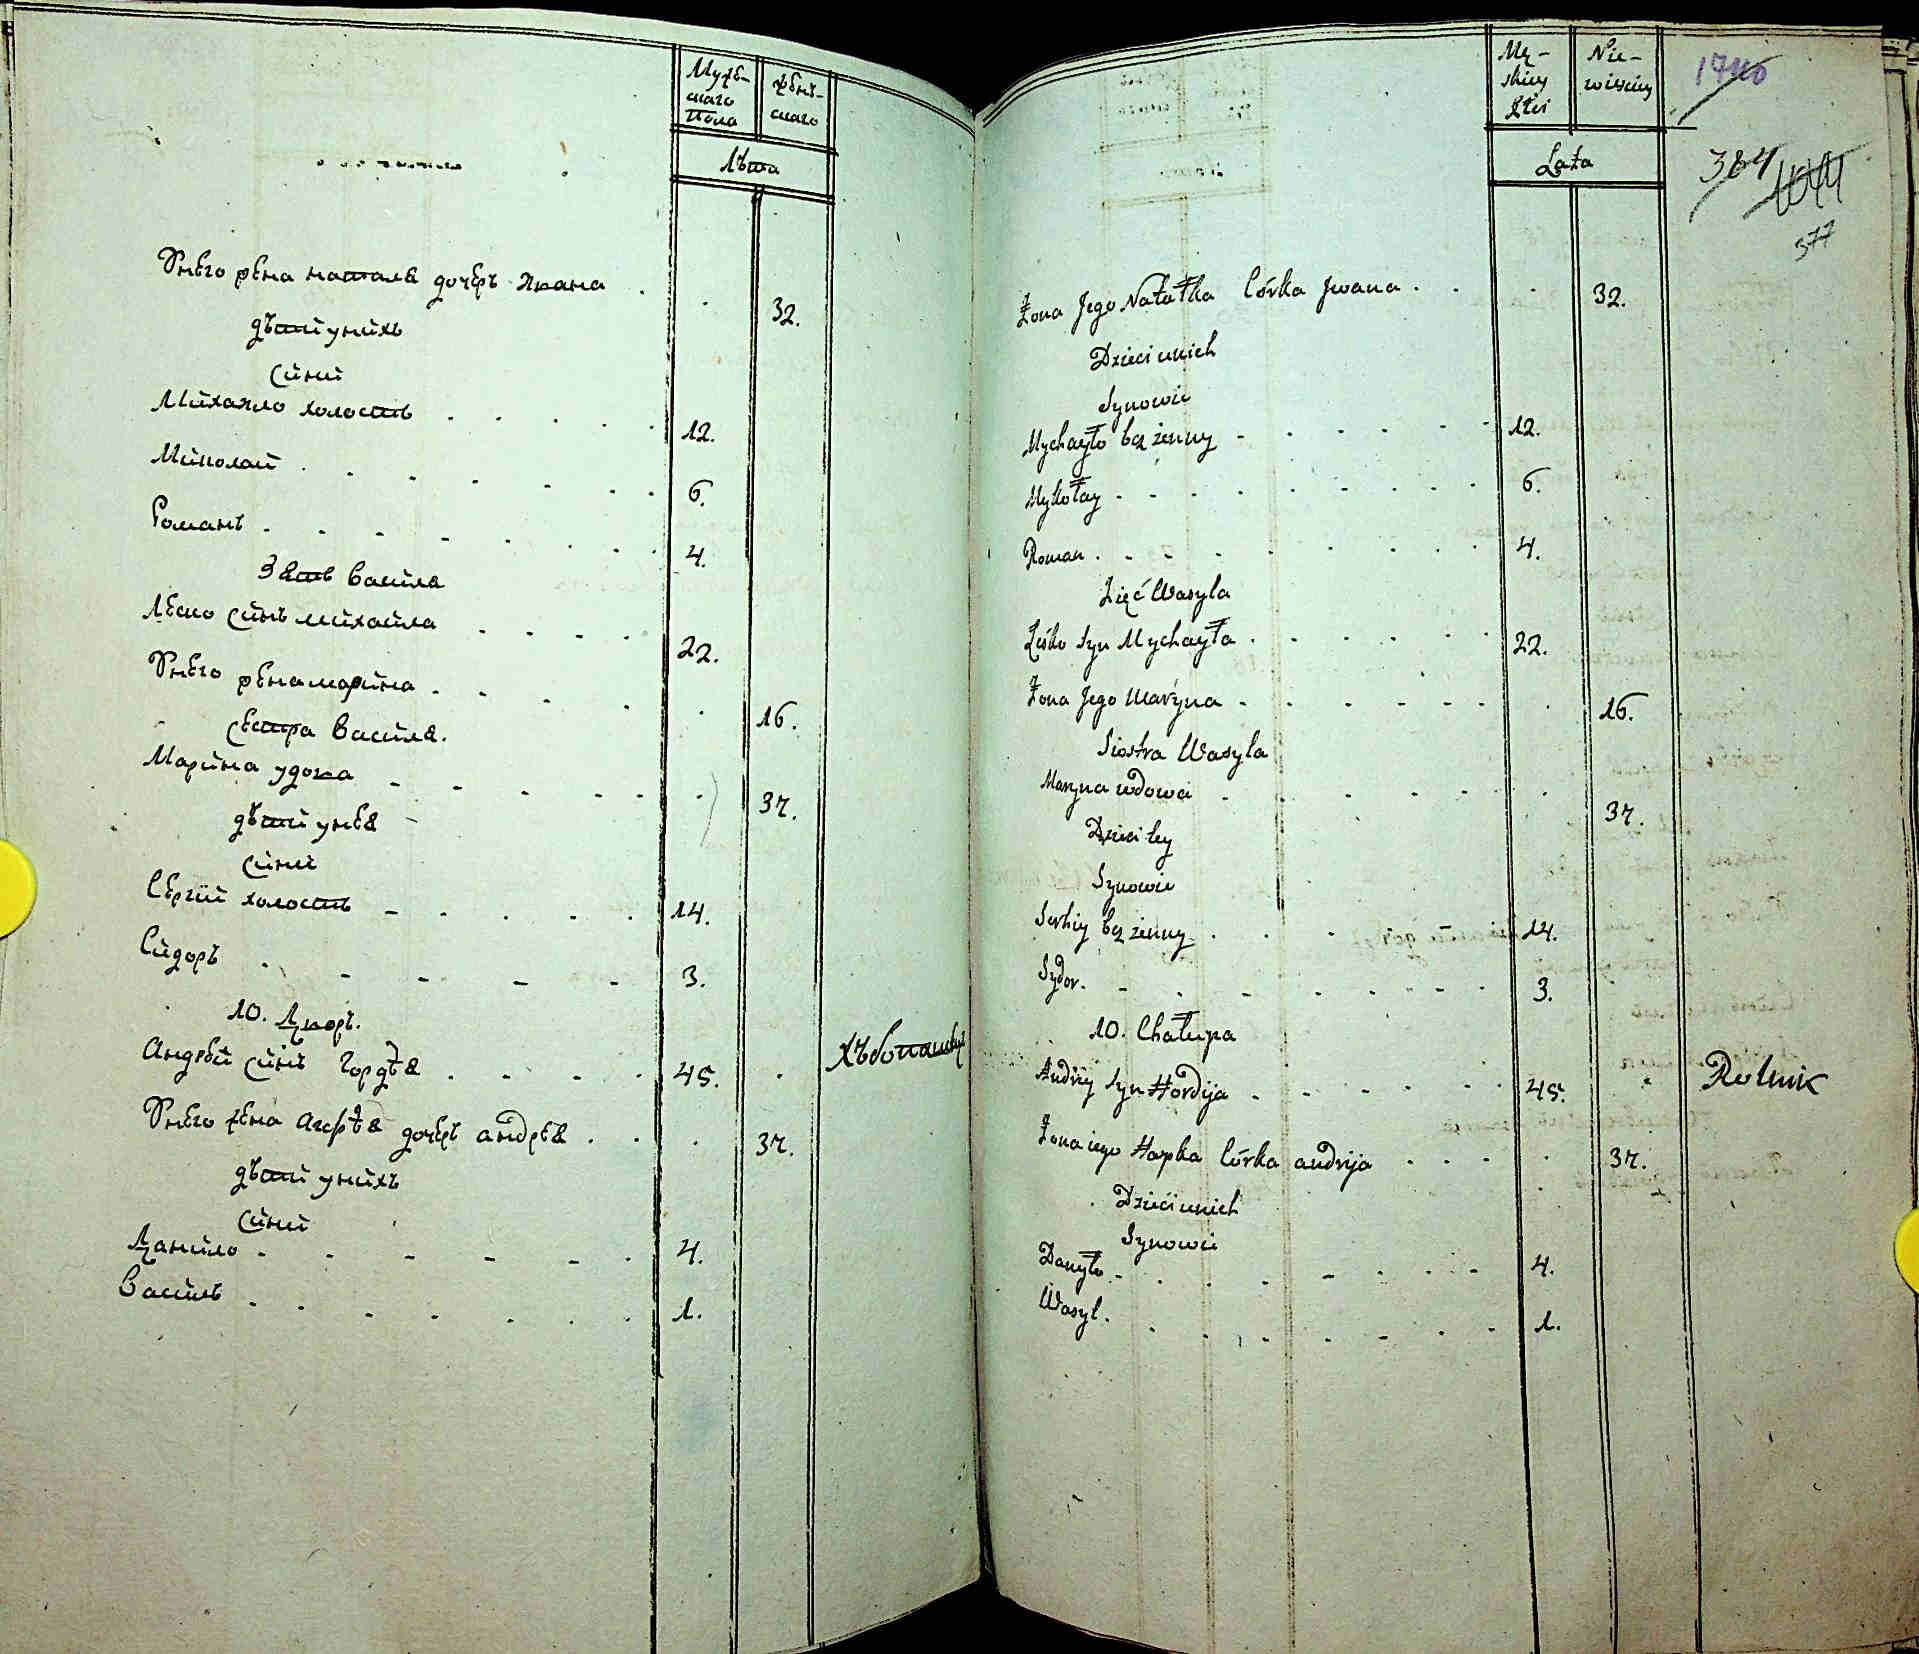 Муже-
скаго
Пола
женъ-
скаго
Лѣта
Унего жена наталя дочерь Ивана . . 32.
дѣти унихъ
Сини
Михайло холостъ . . . . . 12.
Миколай . . . . . . 6.
Романъ . . . . . . . 4.
Зять Василя
Леско синъ михайла . . . . 22.
Унего жена марина . . . . . 16.
сестра Василя.
Марина удова - . . . . . 37.
дѣти унея
Сини
Сергій холостъ - . . . . 14.
Сидоръ . - - - - 3.
10. Дворъ.
Андрей синъ Гордѣя . . . . 45. . Хлѣбопашецъ
Унего жена Агафѣя дочерь андрея . . . 37.
дѣти унихъ
Сини
Данило - - - - - . 4.
Василь . . . . . . 1.
Mę-
skiey
Płci
Nie-
wieściey
Lata
1740
384
1044
377
Żona Jego Natałka Córka Jwana . . . 32.
Dzieci unich
Synowie
Mychayło bezżenny - - - - - 12.
Mykołay - - - - - - - 6.
Roman . - - - - - - 4.
Zięć Wasyla
Leśko Syn Mychayła . . . . . 22.
Żona Jego Maryna - - - - - . 16.
Siostra Wasyla
Maryna wdowa . . . . . . 37.
Dzieci tey
Synowie
Serhiy bezżenny . . . 14.
Sydor. - - - - - - - 3.
10. Chałupa
Andriy Syn Hordija . - - - - 45. . Rolnik
Żona iego Hapka Córka andrija . . . . . 37.
Dzieci unich
Synowie
Danyło - . - - - - - 4.
Wasyl. . . . . . . 1.